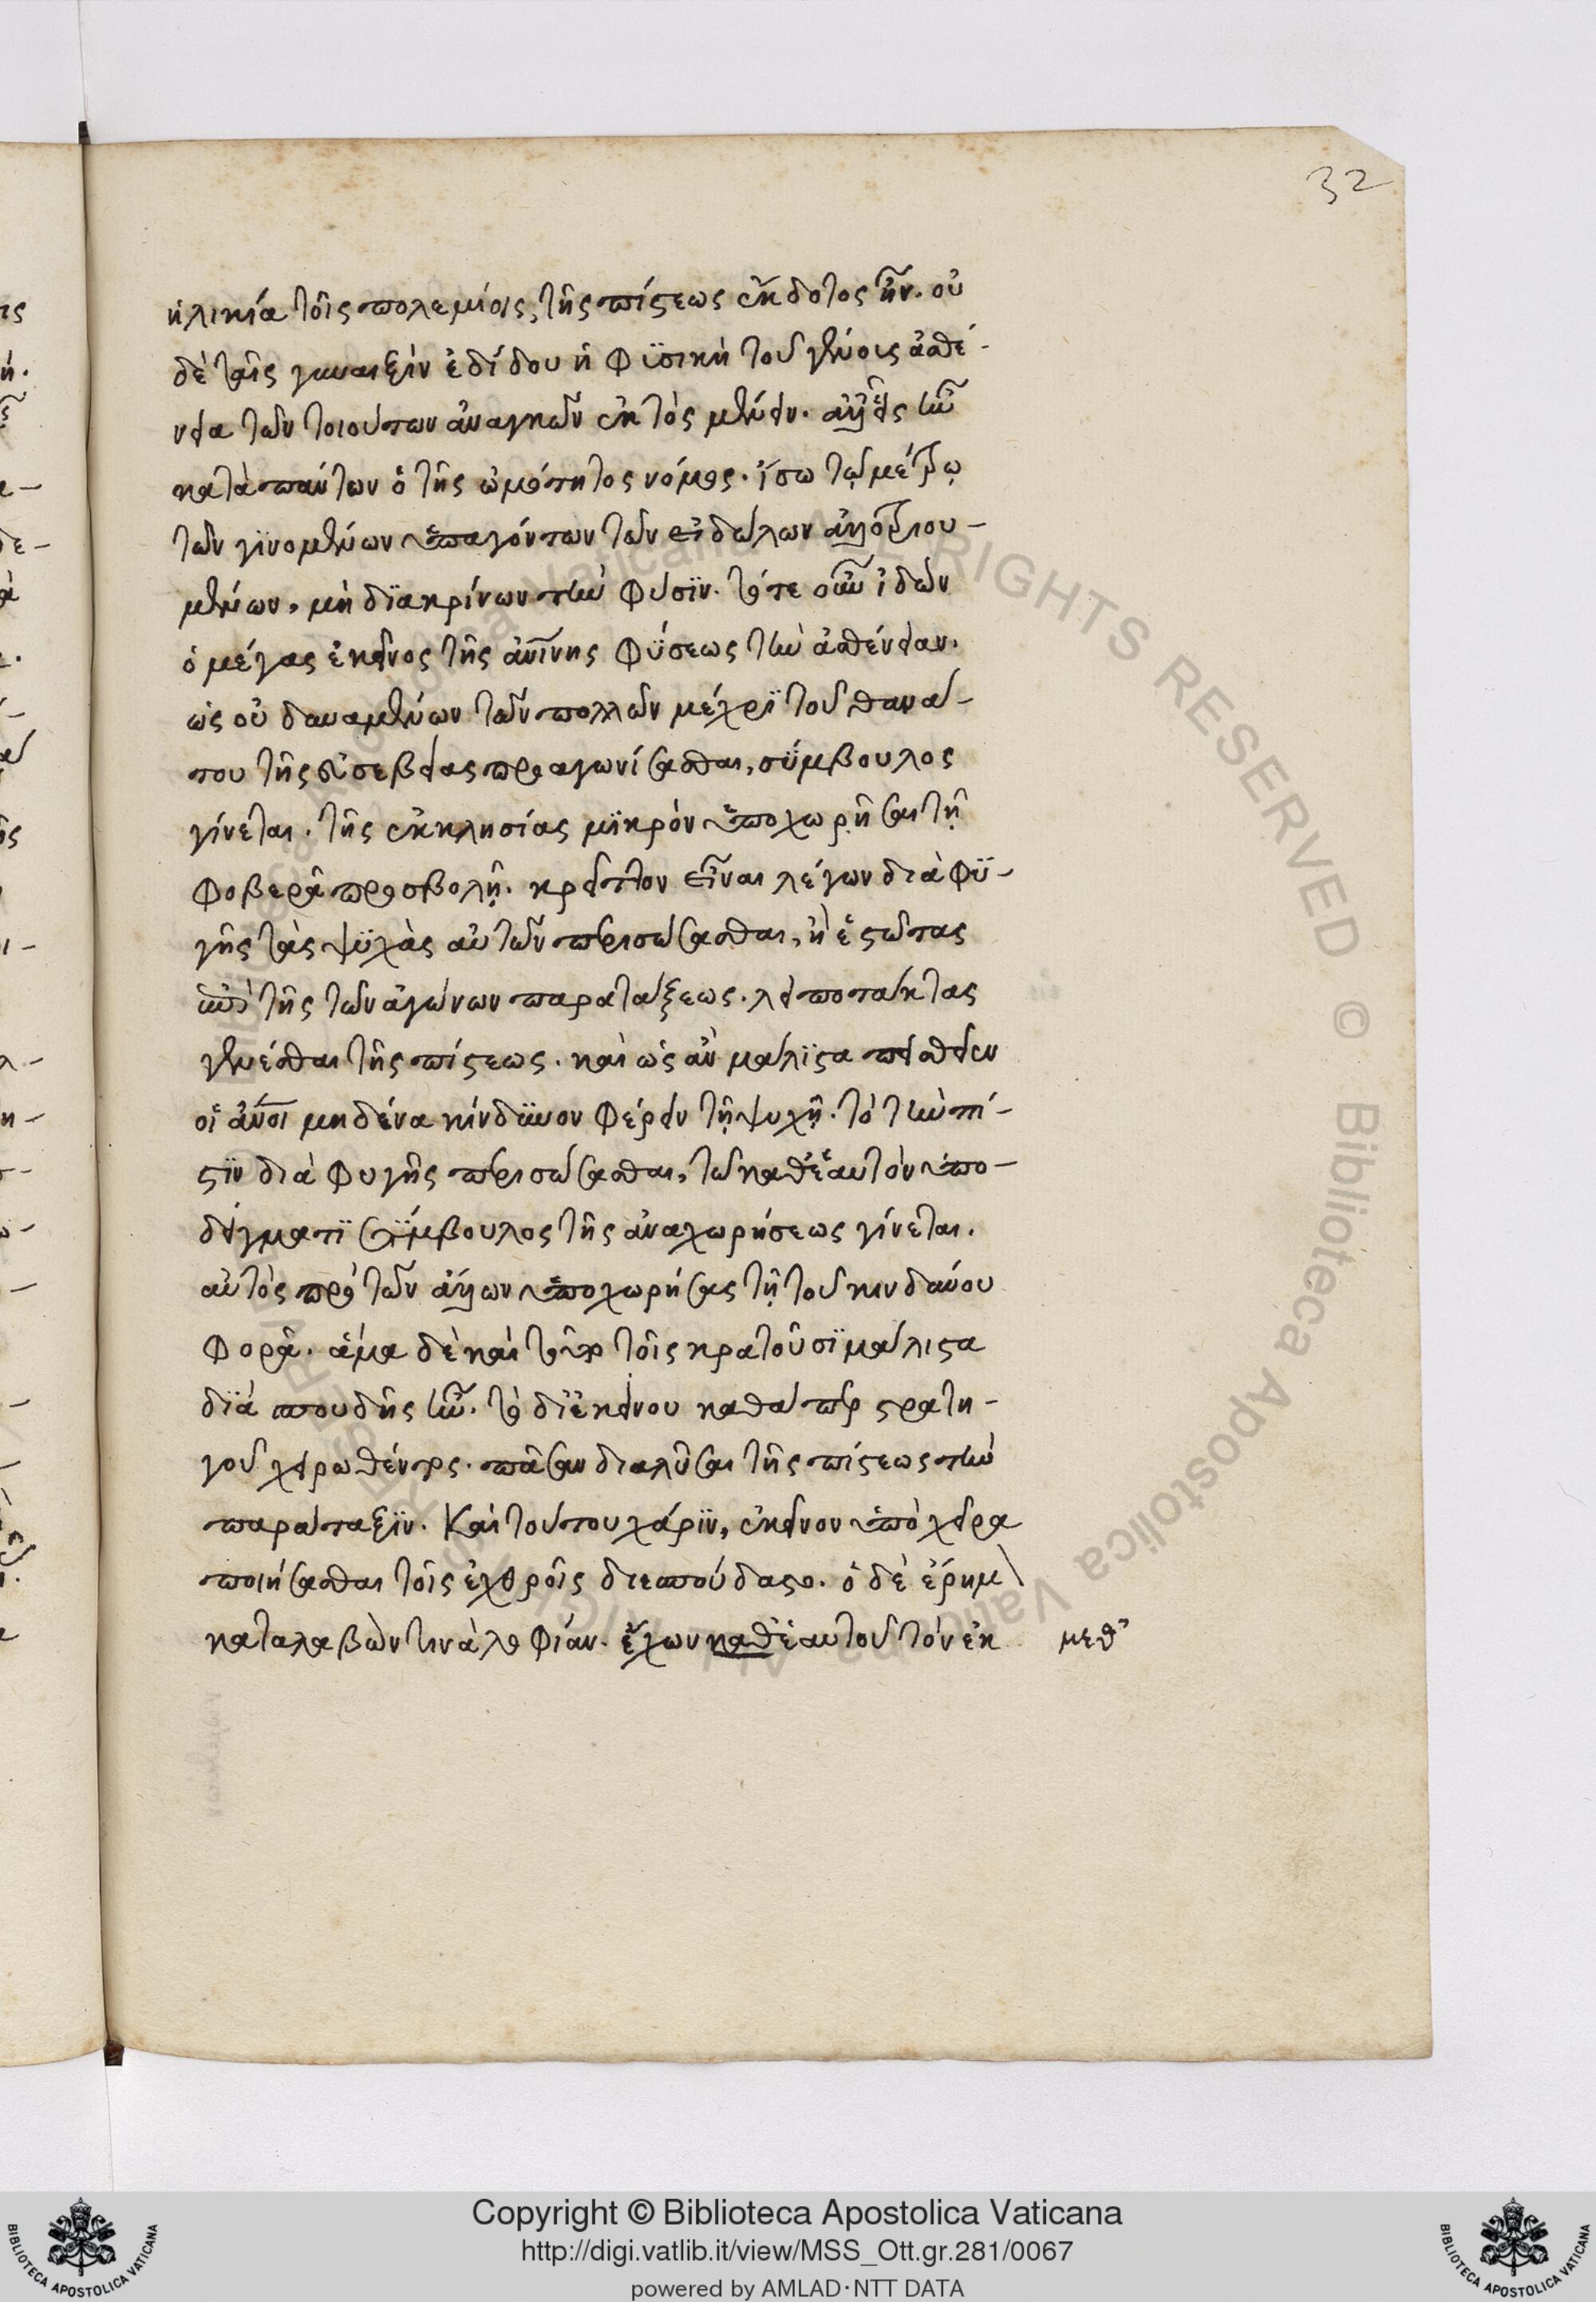 32
ἡλικία τοῖς πολεμίοις, τῆς πίστεως ἔκδοτος ἦν. οὐ
δὲ ταῖς γυναιξὶν ἐδίδου ἡ φϋσικὴ τοῦ γένους ἀσθέ-
νεια τῶν τοιούτων ἀναγκῶν ἐκτὸς μένειν. ἀλλ' εἷς ἦν
κατὰ πάντων ὁ τῆς ὠμότητος νόμος. ἴσω τῷ μέτρῳ
τῶν γϊνομένων ὑπαγόντων τῶν εἰδώλων ἀλλοτριου-
μένων, μὴ δϊακρίνων τὴν φύσϊν. τότε οὖν ἰδὼν
ὁ μέγας ἐκεῖνος τῆς ἀνίνης φϋσεως τὴν ἀσθένειαν.
ὡς οὐ δυναμένων τῶν πολλῶν μέχρϊ τοῦ θανά-
του τῆς εὐσεβείας προαγωνίσασθαι, σϋμβουλος
γίνεται. τῆς ἐκκλησίας μϊκρὸν ὑποχωρῆσαι τῇ
φοβερᾷ προσβολῇ. κρεῖττον εἶναι λέγων διὰ φϋ-
γῆς τὰς ψϋχὰς αὐτῶν περισώσασθαι, ἢ ἑστῶτας
ἐπὶ τῆς τῶν ἀγώνων παρατάξεως. λειποτάκτας
γενέσθαι τῆς πίστεως. καὶ ὡς ἂν μάλϊστα πεισθεῖεν
οἱ ἄνοι μηδένα κίνδϋνον φέρειν τῇ ψυχῇ. τὸ τὴν πί-
στϊν διὰ φυγῆς περισώσασθαι, τῶ καθ' ἑαυτὸν ὑπο-
δείγματϊ σϋμβουλος τῆς ἀναχωρήσεως γίνεται.
αὐτὸς πρὸ τῶν ἄλλων ὑποχωρήσας τῇ τοῦ κινδύνου
φορᾷ. ἅμα δὲ καὶ τοῦτο τοῖς κρατοῦσϊ μάλιστα
δϊὰ σπουδῆς ἦν. τὸ δϊ' ἐκείνου καθάπερ στρατη-
γοῦ χειρωθέντος. πᾶσαν διαλῦσαι τῆς πίστεως τὴν
παράταξϊν. Καὶ τούτου χάρϊν, ἐκεῖνον ὑπὸ χεῖρα
ποιήσασθαι τοῖς ἐχθροῖς διεσπούδαστο. ὁ δὲ ἐρημ\
καταλαβὼν τινὰ λοφιάν. ἔχων καθ' ἑαυτοῦ τὸν ἐκ
μεθ'
Copyright © Biblioteca Apostolica Vaticana
http://digi.vatlib.it/view/MSS_Ott.gr.281/0067
powered by AMLAD·NTT DATA